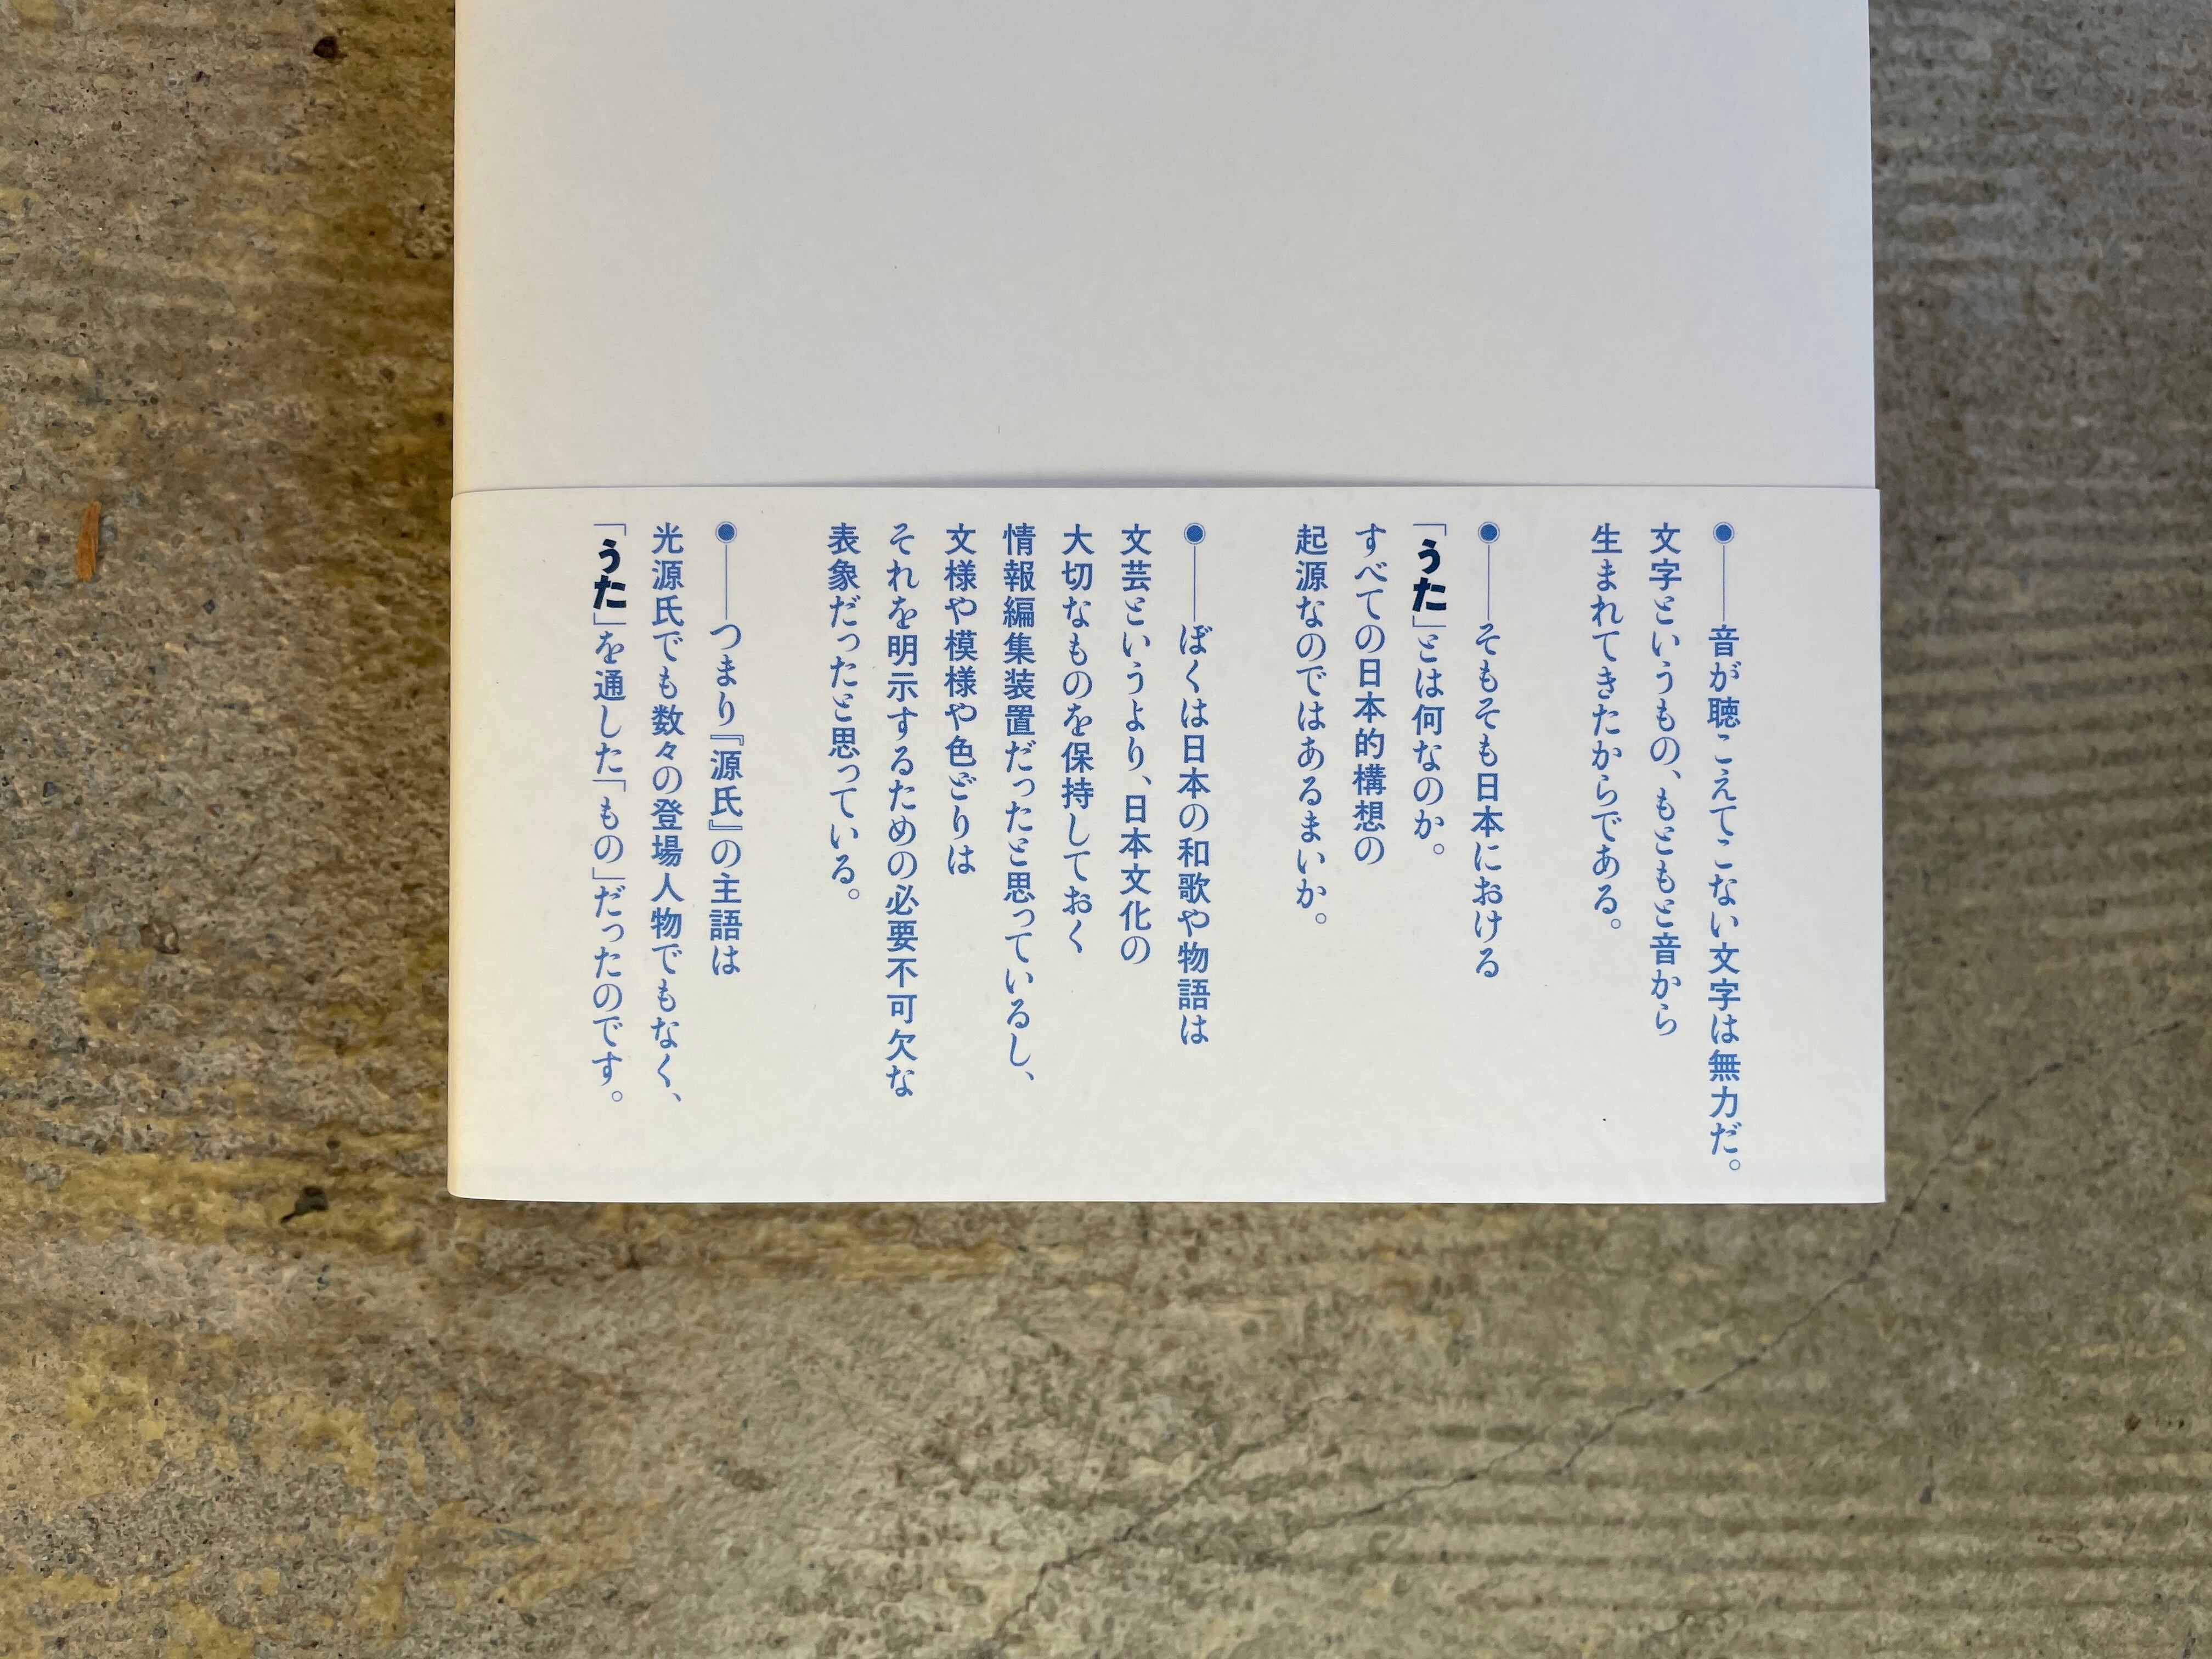 ●──音が聴こえてこない文字は無力だ。
文字というもの、もともと音から
生まれてきたからである。
●──そもそも日本における
「うた」とは何なのか。
すべての日本的構想の
起源なのではあるまいか。
●──ぼくは日本の和歌や物語は
文芸というより、日本文化の
大切なものを保持しておく
情報編集装置だったと思っているし、
文様や模様や色どりは
それを明示するための必要不可欠な
表象だったと思っている。
●──つまり『源氏』の主語は
光源氏でも数々の登場人物でもなく、
「うた」を通した「もの」だったのです。